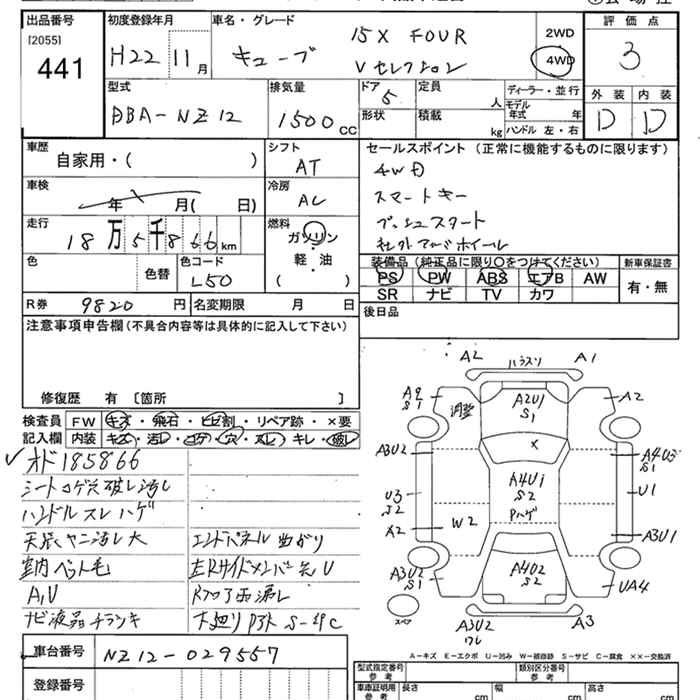 出品番号
[2055]
441
初度登録年月
H22 11月
車名・グレード
キューブ
15X FOUR
Vセレクション
2WD
4WD
評価点
3
外装 内装
D D
型式
DBA-NZ12
排気量
1500CC
ドア
5
形状
定員
人
積載
kg
ディーラー・並行
モデル年式 年
ハンドル 左・右
車歴
自家用・( )
シフト
AT
車検
年 月( 日)
冷房
AC
走行
18万5千866km
燃料
ガソリン
軽・油
( )
色
色替
色コード
L50
R券 9820円
名変期限 月 日
セールスポイント(正常に機能するものに限ります)
4WD
スマートキー
プッシュスタート
社外アルミホイール
装備品(純正品に限り○をつけてください)
PS PW ABS エアB AW
SR ナビ TV カワ
新車保証書
有・無
後日品
注意事項申告欄(不具合内容等は具体的に記入して下さい)
修復歴 有 [箇所 ]
検査員記入欄
FW キズ・飛石・ヒビ割・リペア跡・×要
内装 キズ・汚レ・コゲ・穴・スレ・キレ・破レ
オド185866
シートコゲ穴破レ汚レ
ハンドルスレハゲ
天張ヤニ汚レ大
室内ペット毛
A,V
ナビ液晶チラツキ
エンドパネル曲がり
左RサイドメンバーU
Rフロア
下廻り
A2 ハラスリ A1
A9
S1
調整
A2U1
S1
A2
A3U2
×
A4U3
S1
U3
S2
A4U1
S2
Pハゲ
U1
A2
W2
A3U1
A3U2
S1
A4U2
S2
UA4
スペア
A3U2
ワレ
A3
A-キズ E-エクボ U-凹み W-補修跡 S-サビ C-腐食 XX-交換済
車台番号 NZ12-029557
登録番号
型式指定番号
参考
類別区分番号
参考
車庫証明用
参考
長さ cm
幅 cm
高さ cm